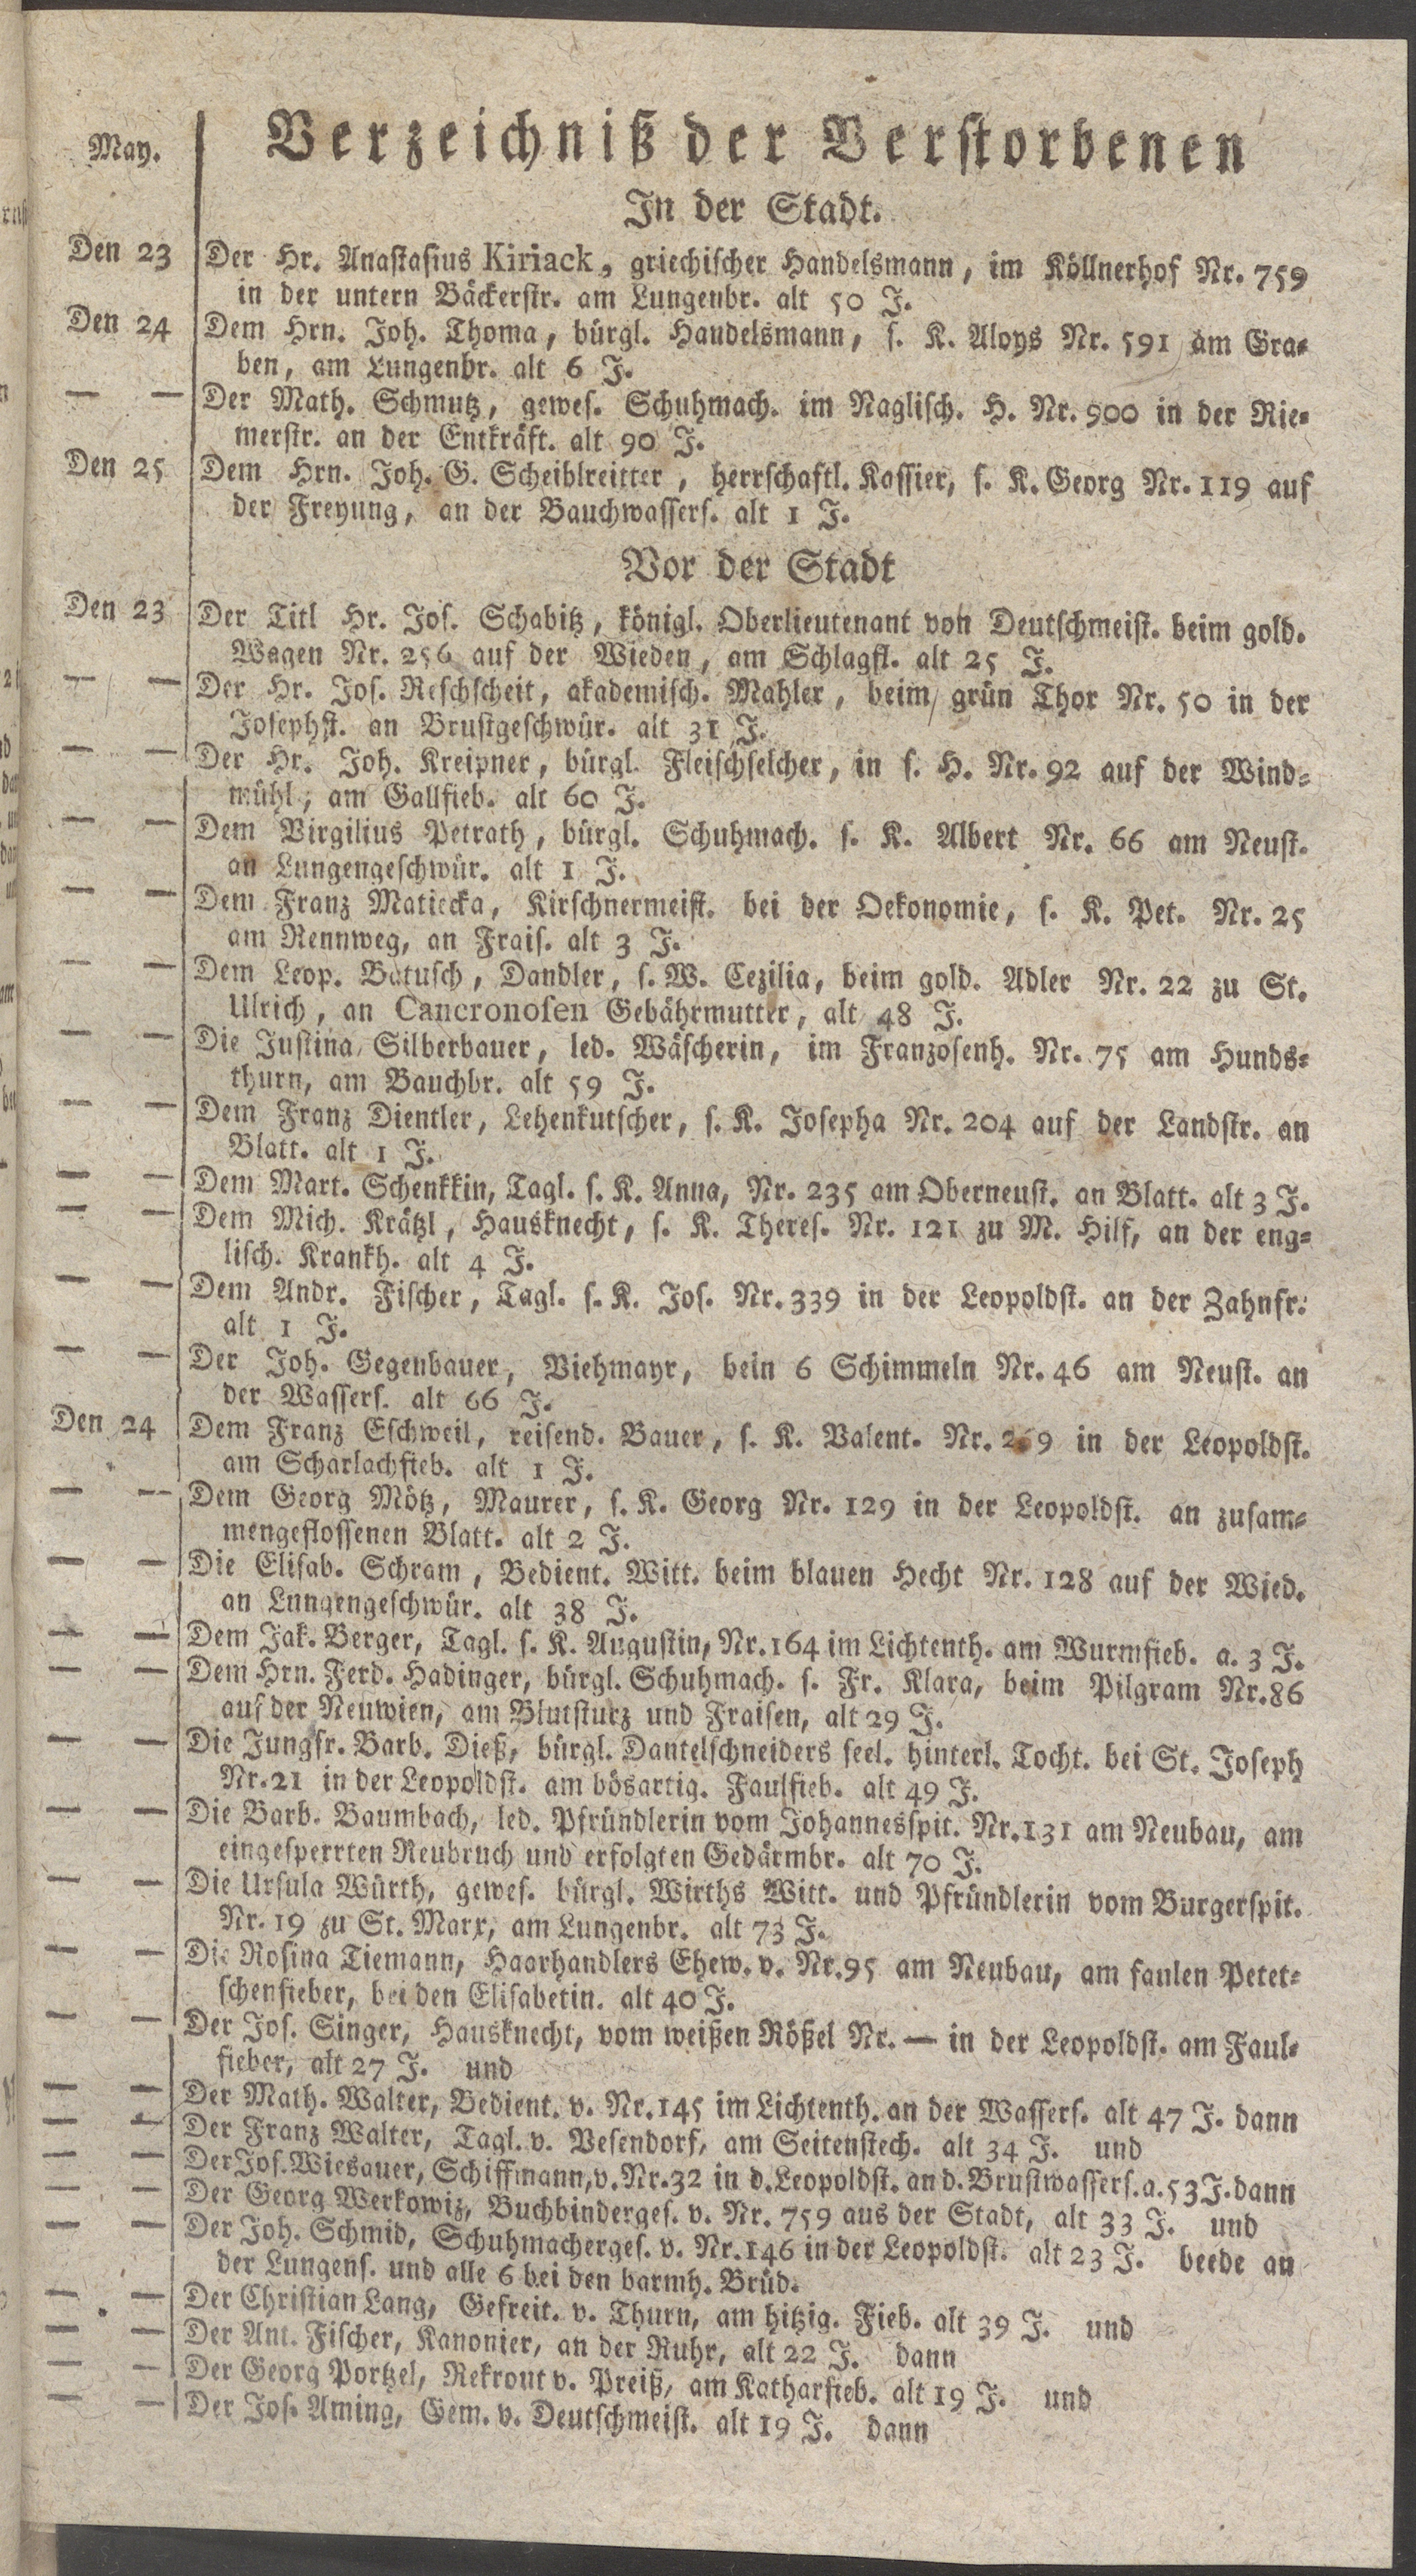 May.
Verzeichniß der Verstorbenen
In der Stadt.
Den 23 Der Hr. Anastasius Kiriack, griechischer Handelsmann, im Köllnerhof Nr. 759
in der untern Bäckerstr. am Lungenbr. alt 50 J.
Den 24 Dem Hrn. Joh. Thoma, bürgl. Handelsmann, s. K. Aloys Nr. 591 am Gra-
ben, am Lungenbr. alt 6 J.
— — Der Math. Schmutz, gewes. Schuhmach. im Naglisch. H. Nr. 900 in der Rie-
merstr. an der Entkräft. alt 90 J.
Den 25 Dem Hrn. Joh. G. Scheiblreitter, herrschaftl. Kassier, s. K. Georg Nr. 119 auf
der Freyung, an der Bauchwassers. alt 1 J.
Vor der Stadt
Den 23 Der Titl Hr. Jos. Schabitz, königl. Oberlieutenant von Deutschmeist. beim gold.
Wagen Nr. 256 auf der Wieden, am Schlagfl. alt 25 J.
— — Der Hr. Jos. Reschscheit, akademisch. Mahler, beim grün Thor Nr. 50 in der
Josephst. an Brustgeschwür. alt 31 J.
— — Der Hr. Joh. Kreipner, bürgl. Fleischselcher, in s. H. Nr. 92 auf der Wind-
mühl, am Gallfieb. alt 60 J.
— — Dem Virgilius Petrath, bürgl. Schuhmach. s. K. Albert Nr. 66 am Neust.
an Lungengeschwür. alt 1 J.
— — Dem Franz Matiecka, Kirschnermeist. bei der Oekonomie, s. K. Pet. Nr. 25
am Rennweg, an Frais. alt 3 J.
— — Dem Leop. Batusch, Dandler, s. W. Cezilia, beim gold. Adler Nr. 22 zu St.
Ulrich, an Cancronosen Gebährmutter, alt 48 J.
— — Die Justina Silberbauer, led. Wäscherin, im Franzosenh. Nr. 75 am Hunds-
thurn, am Bauchbr. alt 59 J.
— — Dem Franz Dientler, Lehenkutscher, s. K. Josepha Nr. 204 auf der Landstr. an
Blatt. alt 1 J.
— — Dem Mart. Schenkkin, Tagl. s. K. Anna, Nr. 235 am Oberneust. an Blatt. alt 3 J.
— — Dem Mich. Krätzl, Hausknecht, s. K. Theres. Nr. 121 zu M. Hilf, an der eng-
lisch. Krankh. alt 4 J.
— — Dem Andr. Fischer, Tagl. s. K. Jos. Nr. 339 in der Leopoldst. an der Zahnfr.
alt 1 J.
— — Der Joh. Gegenbauer, Viehmayr, bein 6 Schimmeln Nr. 46 am Neust. an
der Wassers. alt 66 J.
Den 24 Dem Franz Eschweil, reisend. Bauer, s. K. Valent. Nr. 269 in der Leopoldst.
am Scharlachfieb. alt 1 J.
— — Dem Georg Mötz, Maurer, s. K. Georg Nr. 129 in der Leopoldst. an zusam-
mengeflossenen Blatt. alt 2 J.
— — Die Elisab. Schram, Bedient. Witt. beim blauen Hecht Nr. 128 auf der Wied.
an Lungengeschwür. alt 38 J.
— — Dem Jak. Berger, Tagl. s. K. Augustin, Nr. 164 im Lichtenth. am Wurmfieb. a. 3 J.
— — Dem Hrn. Ferd. Hadinger, bürgl. Schuhmach. s. Fr. Klara, beim Pilgram Nr. 86
auf der Neuwien, am Blutsturz und Fraisen, alt 29 J.
— — Die Jungfr. Barb. Dieß, bürgl. Dantelschneiders seel. hinterl. Tocht. bei St. Joseph
Nr. 21 in der Leopoldst. am bösartig. Faulfieb. alt 49 J.
— — Die Barb. Baumbach, led. Pfründlerin vom Johannesspit. Nr. 131 am Neubau, am
eingesperrten Neubruch und erfolgten Gedärmbr. alt 70 J.
— — Die Ursula Würth, gewes. bürgl. Wirths Witt. und Pfründlerin vom Burgerspit.
Nr. 19 zu St. Marx, am Lungenbr. alt 73 J.
— — Die Rosina Tiemann, Haarhandlers Ehew. v. Nr. 95 am Neubau, am faulen Petet-
schenfieber, bei den Elisabetin. alt 40 J.
— — Der Jos. Singer, Hausknecht, vom weißen Rößel Nr. — in der Leopoldst. am Faul-
fieber, alt 27 J. und
— — Der Math. Walter, Bedient. v. Nr. 145 im Lichtenth. an der Wassers. alt 47 J. dann
— — Der Franz Walter, Tagl. v. Vesendorf, am Seitenstech. alt 34 J. und
— — Der Jos. Wiesauer, Schiffmann, v. Nr. 32 in d. Leopoldst. an d. Brustwassers. a. 53 J. dann
— — Der Georg Werkowiz, Buchbinderges. v. Nr. 759 aus der Stadt, alt 33 J. und
— — Der Joh. Schmid, Schuhmacherges. v. Nr. 146 in der Leopoldst. alt 23 J. beede an
der Lungens. und alle 6 bei den barmh. Brüd.
— — Der Christian Lang, Gefreit. v. Thurn, am hitzig. Fieb. alt 39 J. und
— — Der Ant. Fischer, Kanonier, an der Ruhr, alt 22 J. dann
— — Der Georg Portzel, Rekrout v. Preiß, am Katharfieb. alt 19 J. und
— — Der Jos. Aming, Gem. v. Deutschmeist. alt 19 J. dann